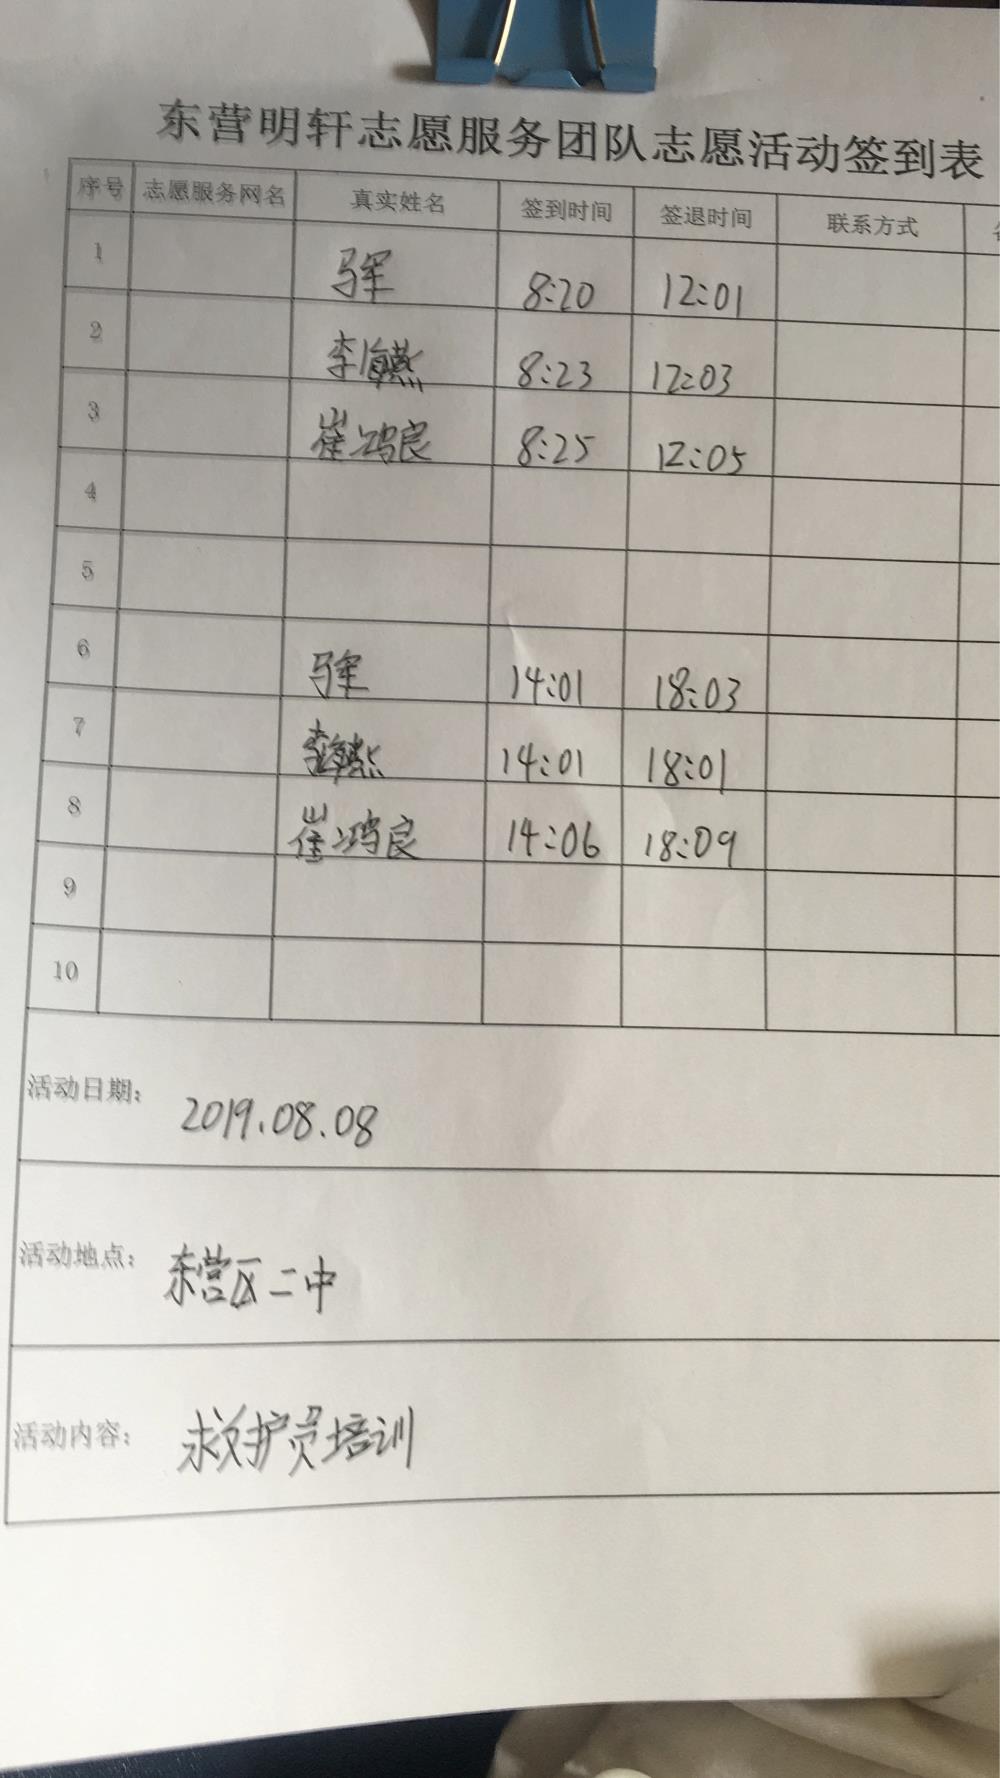 东营明轩志愿服务团队志愿活动签到表
序号 志愿服务网名 真实姓名 签到时间 签退时间 联系方式
1 马军 8:20 12:01
2 李海燕 8:23 12:03
3 崔鸿良 8:25 12:05
4
5
6 马军 14:01 18:03
7 李海燕 14:01 18:01
8 崔鸿良 14:06 18:09
9
10
活动日期: 2019.08.08
活动地点: 东营区二中
活动内容: 救护员培训